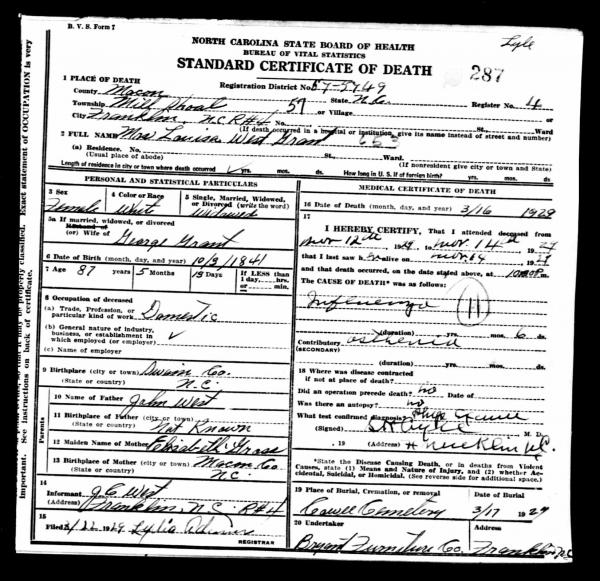 B. V. S. Form 7
Lyle
NORTH CAROLINA STATE BOARD OF HEALTH
BUREAU OF VITAL STATISTICS
STANDARD CERTIFICATE OF DEATH
287
1 PLACE OF DEATH
Registration District No. 57-5749
County Macon State N.C. Register No. 4
Township Mill Shoal 57 or Village
City Franklin, N.C. R#4 No. St., Ward
(If death occurred in a hospital or institution, give its name instead of street and number)
2 FULL NAME Mrs Louisa West Grant
(a) Residence. No. St., Ward.
(Usual place of abode) (If nonresident give city or town and State)
Length of residence in city or town where death occurred yrs. mos. ds. How long in U. S. if of foreign birth? yrs. mos. ds.
PERSONAL AND STATISTICAL PARTICULARS
3 Sex
Female
4 Color or Race
White
5 Single, Married, Widowed, or Divorced (write the word)
Widowed
5a If married, widowed, or divorced
Husband of
(or) Wife of George Grant
6 Date of Birth (month, day, year) 10/3/1841
7 Age 87 years 5 Months 13 Days If LESS than
1 day, hrs.
or min.
8 Occupation of deceased
(a) Trade, Profession, or
particular kind of work Domestic
(b) General nature of industry,
business, or establishment in
which employed (or employer)
(c) Name of employer
9 Birthplace (city or town) Swain Co.
(State or country) N.C.
Parents
10 Name of Father John West
11 Birthplace of Father (city or town)
(State or country) Not Known
12 Maiden Name of Mother Elizabeth
13 Birthplace of Mother (city or town) Macon Co.
(State or country) N.C.
14
Informant J.C. West
(Address) Franklin, N.C. R#4
15
Filed 22 1929 Lylia
REGISTRAR
MEDICAL CERTIFICATE OF DEATH
16 Date of Death (month, day, year) 3/16 1929
17
I HEREBY CERTIFY, That I attended deceased from
Mar 12th 1929 to Mar. 14th 1929
that I last saw h er alive on Mar 14 1929
and that death occurred, on the date stated above, at m.
The CAUSE OF DEATH* was as follows:
Influenza
11
(duration) yrs. mos. 6 ds.
Contributory asthenia
(SECONDARY)
(duration) yrs. mos. ds.
18 Where was disease contracted
if not at place of death?
Did an operation precede death? no Date of
Was there an autopsy? no
What test confirmed diagnosis?
(Signed) M. D.
, 19 (Address) Franklin N.C.
*State the Disease Causing Death, or in deaths from Violent
Causes, state (1) Means and Nature of Injury, and (2) whether Accidental, Suicidal, or Homicidal. (See reverse side for additional space.)
19 Place of Burial, Cremation, or removal Date of Burial
Cowee Cemetery 3/17 1929
20 Undertaker Address
Bryant Furniture Co. Franklin N.C.
Important. See instructions on back of certificate.
Exact statement of OCCUPATION is very